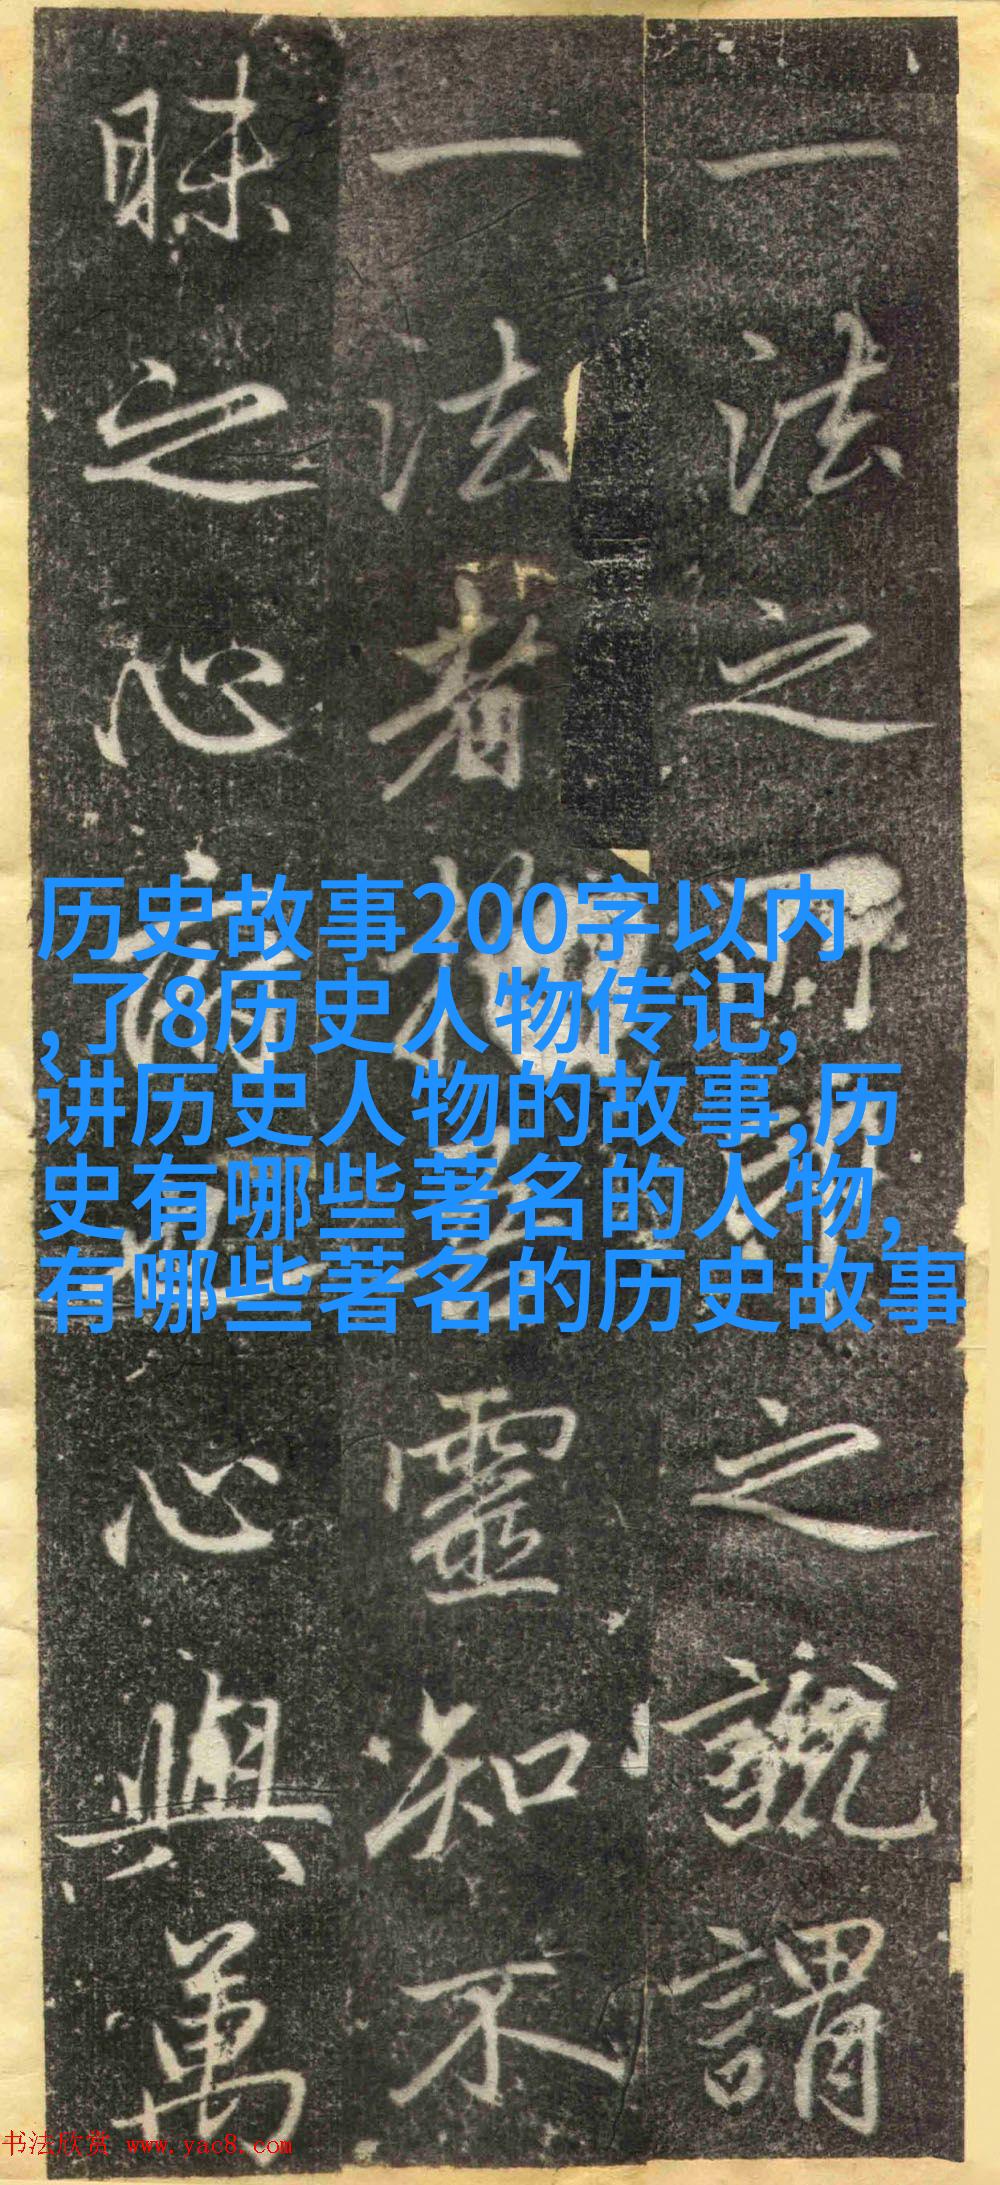 一法之所之謂
一法者靈知不
昧之心心與萬
历史故事200字以内
,了8历史人物传记,
讲历史人物的故事,历
史有哪些著名的人物,
有哪些著名的历史故事
书法欣赏 www.yac8.com